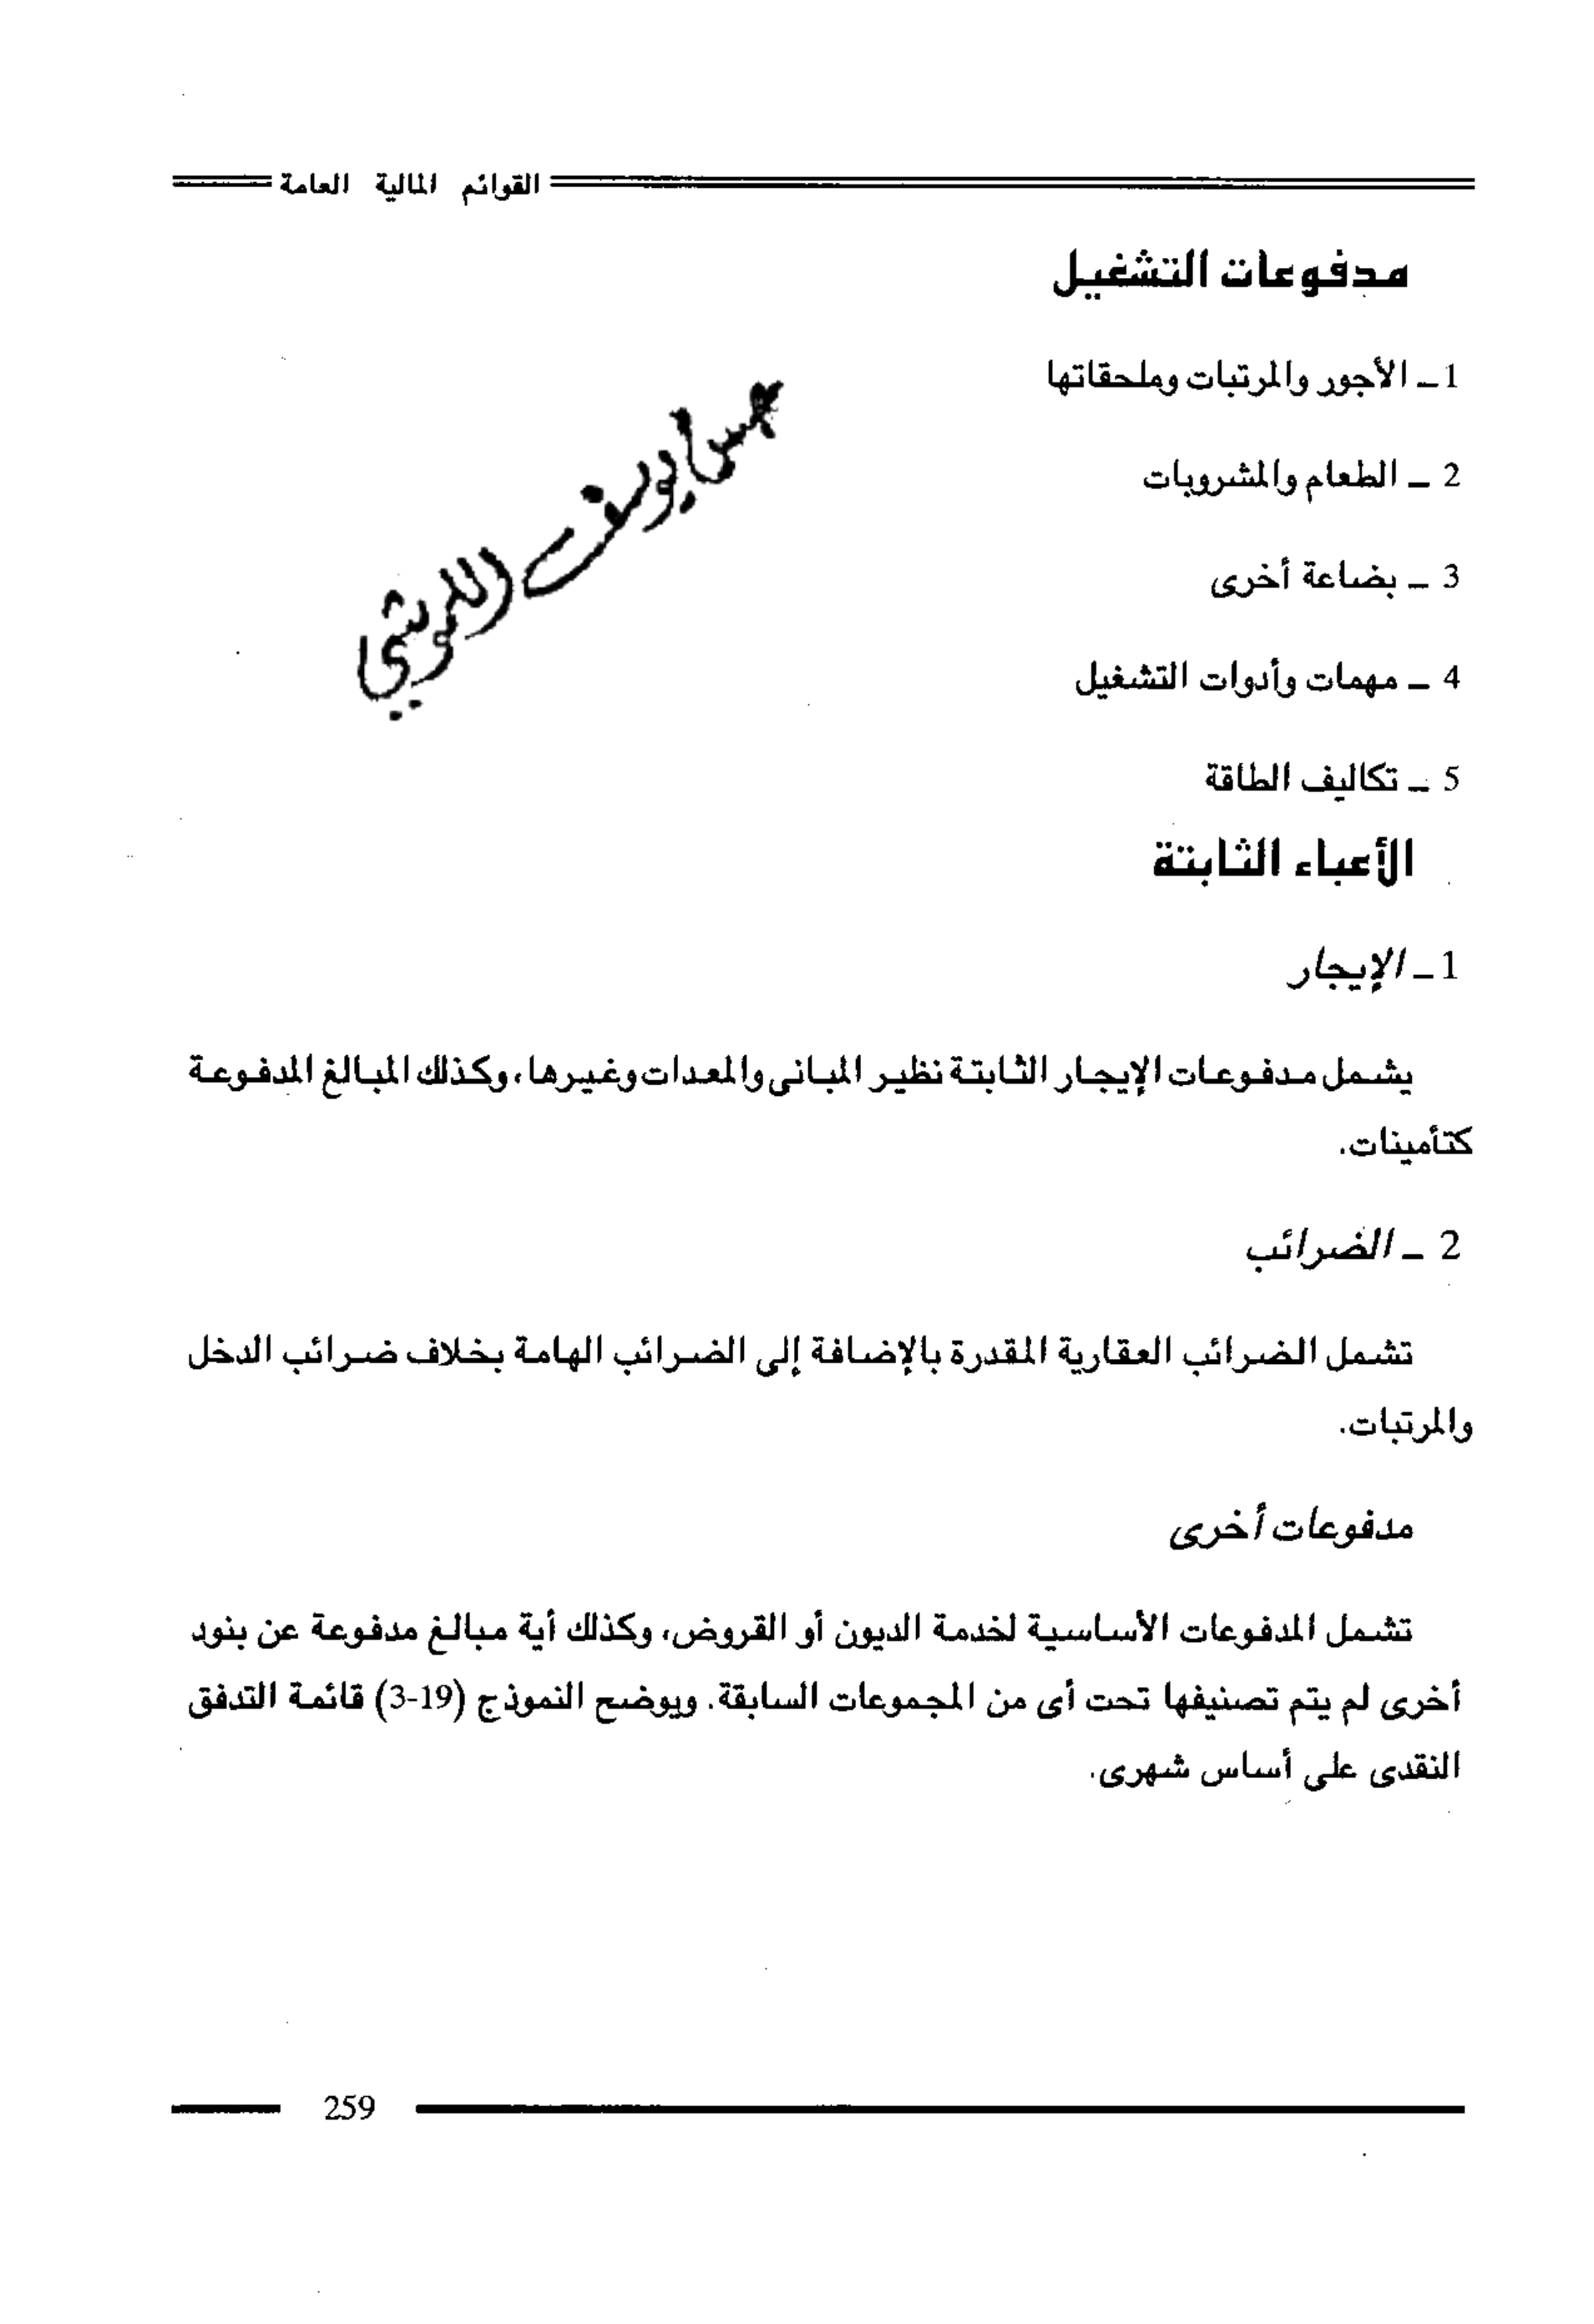 القوائم المالية العامة
مدفوعات التشغيل
1 ـ الأجور والمرتبات وملحقاتها
2 ـ الطعام والمشروبات
3 ـ بضاعة أخرى
4 ـ مهمات وأدوات التشغيل
5 ـ تكاليف الطاقة
الأعباء الثابتة
1 ـ الإيجار
يشمل مدفوعات الإيجار الثابتة نظير المبانى والمعدات وغيرها، وكذلك المبالغ المدفوعة
كتأمينات.
2 ـ الضرائب
تشمل الضرائب العقارية المقدرة بالإضافة إلى الضرائب الهامة بخلاف ضرائب الدخل
والمرتبات.
مدفوعات أخرى
تشمل المدفوعات الأساسية لخدمة الديون أو القروض، وكذلك أية مبالغ مدفوعة عن بنود
أخرى لم يتم تصنيفها تحت أى من المجموعات السابقة. ويوضح النموذج (19-3) قائمة التدفق
النقدى على أساس شهرى.
259